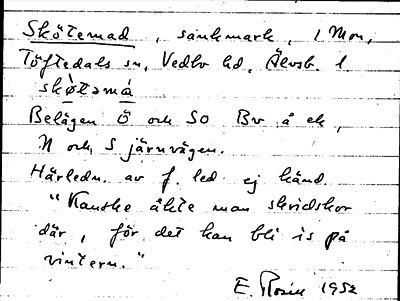 Skötemad, sankmark, i Mon,
Töftedals sn, Vedbo hd, Älvsb. l.
skø̀təmá
Belägen Ö och SO Bv å ek,
N och S järnvägen.
Härledn. av f. led ej känd.
"Kanske åkte man skridskor
där, för det kan bli is på
vintern."
E. Rosén 1952